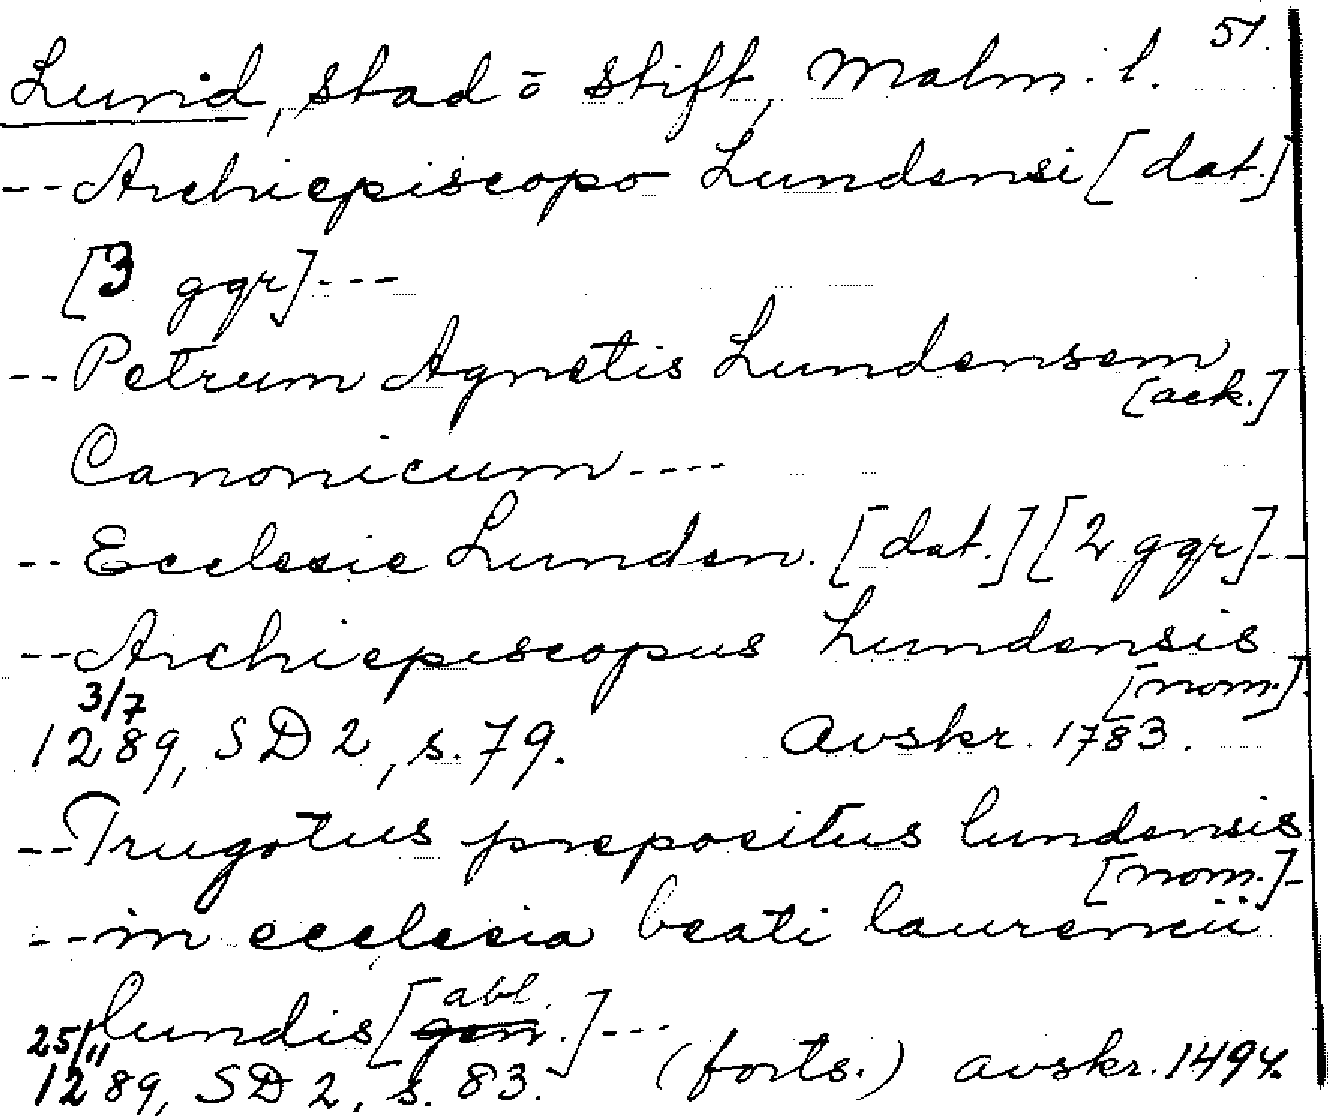 51.
Lund, stad o stift, Malm. l.
-- Archiepiscopo Lundensi [dat.]
[3 ggr] ---
-- Petrum Agnetis Lundensem
[ack.]
Canonicum ----
-- Ecclesie Lunden. [dat.] [2 ggr] --
-- Archiepiscopus Lundensis
[nom.]
3/7
1289, SD 2, s. 79. Avskr. 1783.
-- Trugotus prepositus lundensis
[nom.] -
-- in ecclesia beati laurencii
abl.
lundis [gen.] ---
25/11
1289, SD 2, s. 83. (forts.) avskr. 1494.